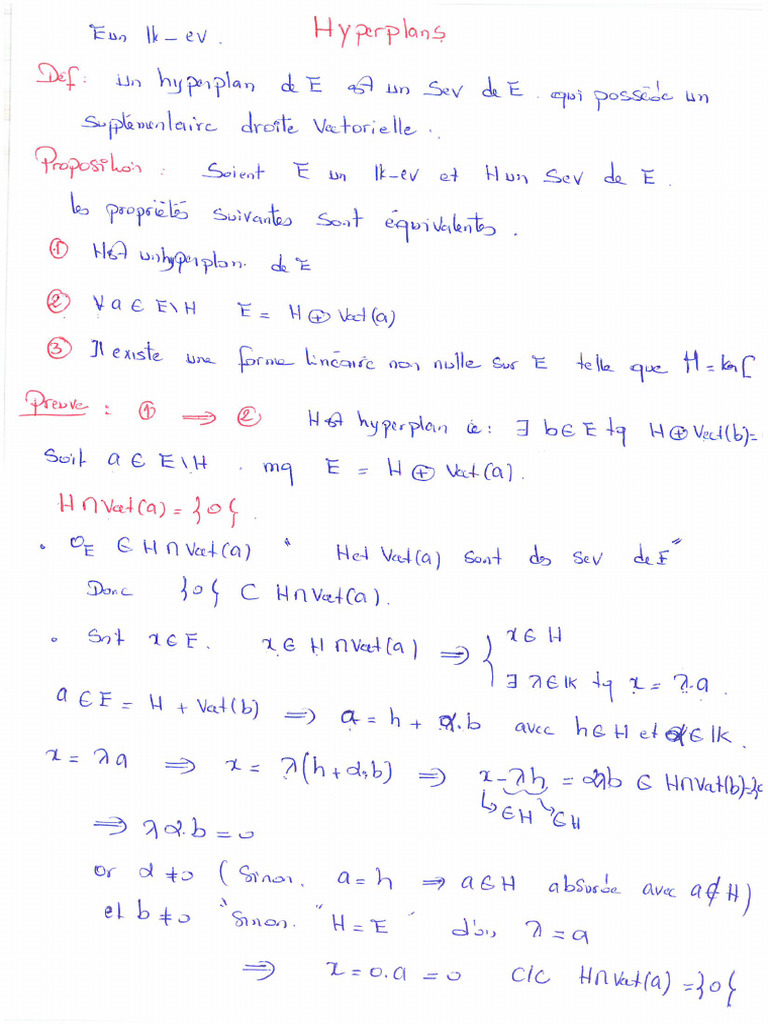 E un lk-ev. Hyperplans
Déf: un hyperplan de E est un sev de E qui possède un
supplémentaire droite vectorielle.
Proposition: Soient E un lk-ev et H un sev de E.
les propriétés suivantes sont équivalentes.
① H est un hyperplan de E
② ∀ a ∈ E\H E = H ⊕ Vect(a)
③ Il existe une forme linéaire non nulle sur E telle que H = ker f
Preuve: ① ⟹ ② H est hyperplan ie: ∃ b∈E tq H⊕Vect(b)=
Soit a ∈ E\H. mq E = H ⊕ Vect(a).
H∩Vect(a) = }0{.
• 0E ∈ H∩Vect(a) " H et Vect(a) sont des sev de E"
Donc }0{ ⊂ H∩Vect(a).
• Soit x∈E. x∈ H∩Vect(a) ⟹ { x∈H
∃ λ∈lk tq x = λ.a.
a∈E = H + Vect(b) ⟹ a = h + α.b avec h∈H et α∈lK.
x = λa ⟹ x = λ(h+α.b) ⟹ x-λh = αλb ∈ H∩Vect(b)=}0
↳∈H ↘∈H
⟹ λα.b = 0
or α≠0 (Sinon. a=h ⟹ a∈H absurde avec a∉H)
et b≠0 "Sinon. "H=E" d'où λ=a
⟹ x=0.a=0 C/C H∩Vect(a) =}0{